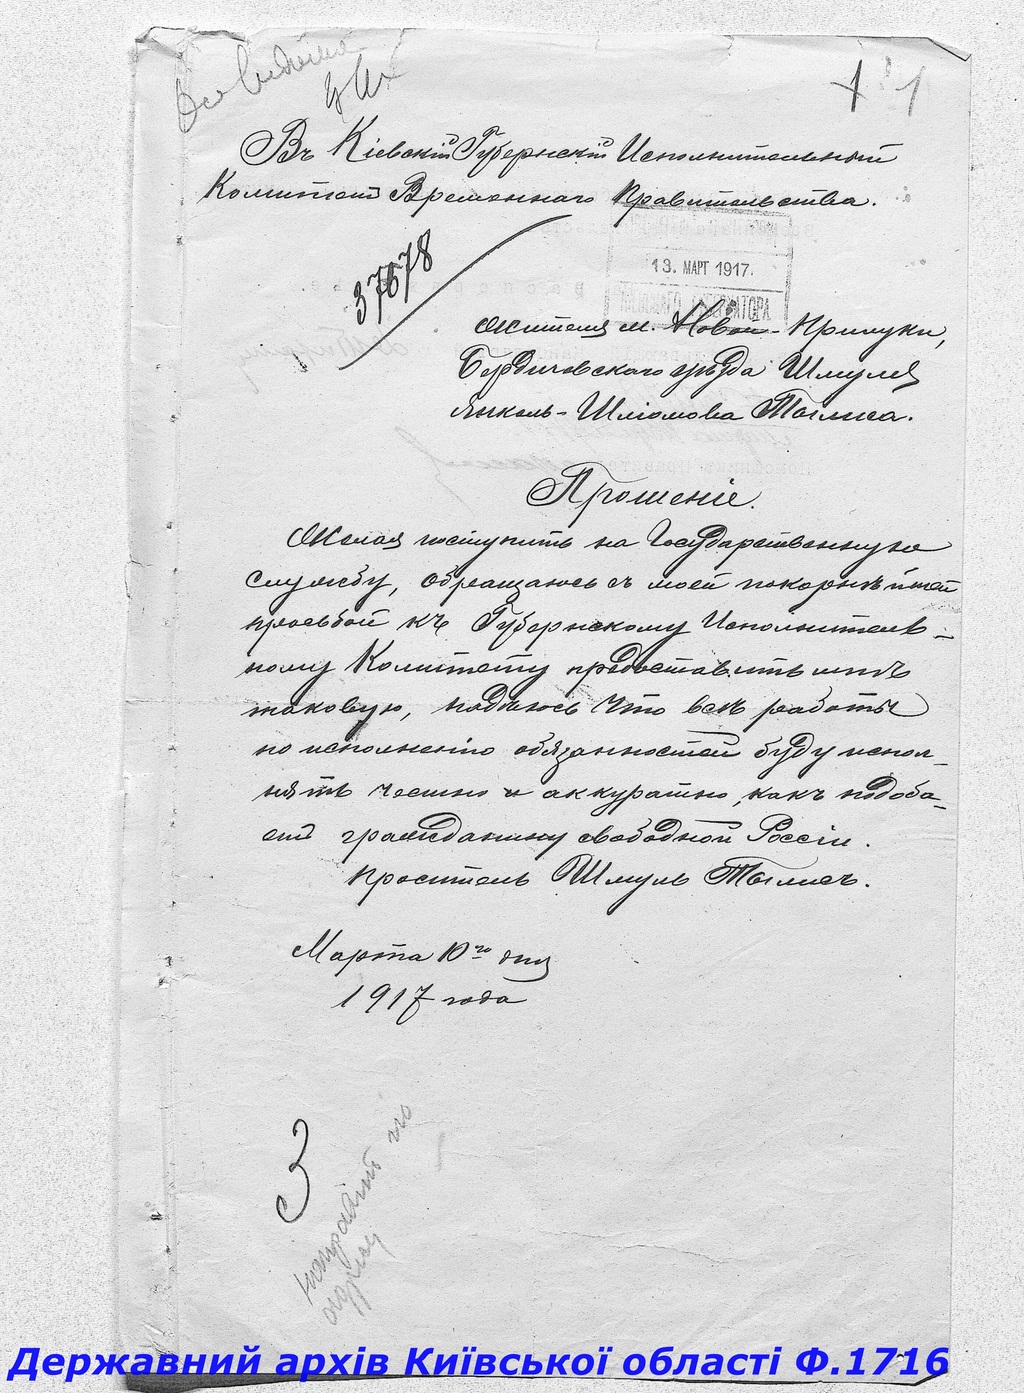 1 1
Въ Кіевскій Губернскій Исполнительный
Комитетъ Временнаго Правительства.
37678
13. МАРТ 1917.
Жителя м. Новой-Прилуки,
Бердичевскаго уѣзда Шмуля
Янкель-Шліомова
Прошеніе.
Желая поступить на Государственную
службу, обращаюсь съ моей покорнѣйшей
просьбой къ Губернскому Исполнитель-
ному Комитету предоставить мнѣ
таковую, надѣюсь что всѣ работы
по исполненію обязанностей буду испол-
нять честно и аккуратно, какъ подоба-
етъ гражданину свободной Россіи.
Проситель Шмуль
Марта 10го дня
1917 года
3
Державний архів Київської області Ф.1716